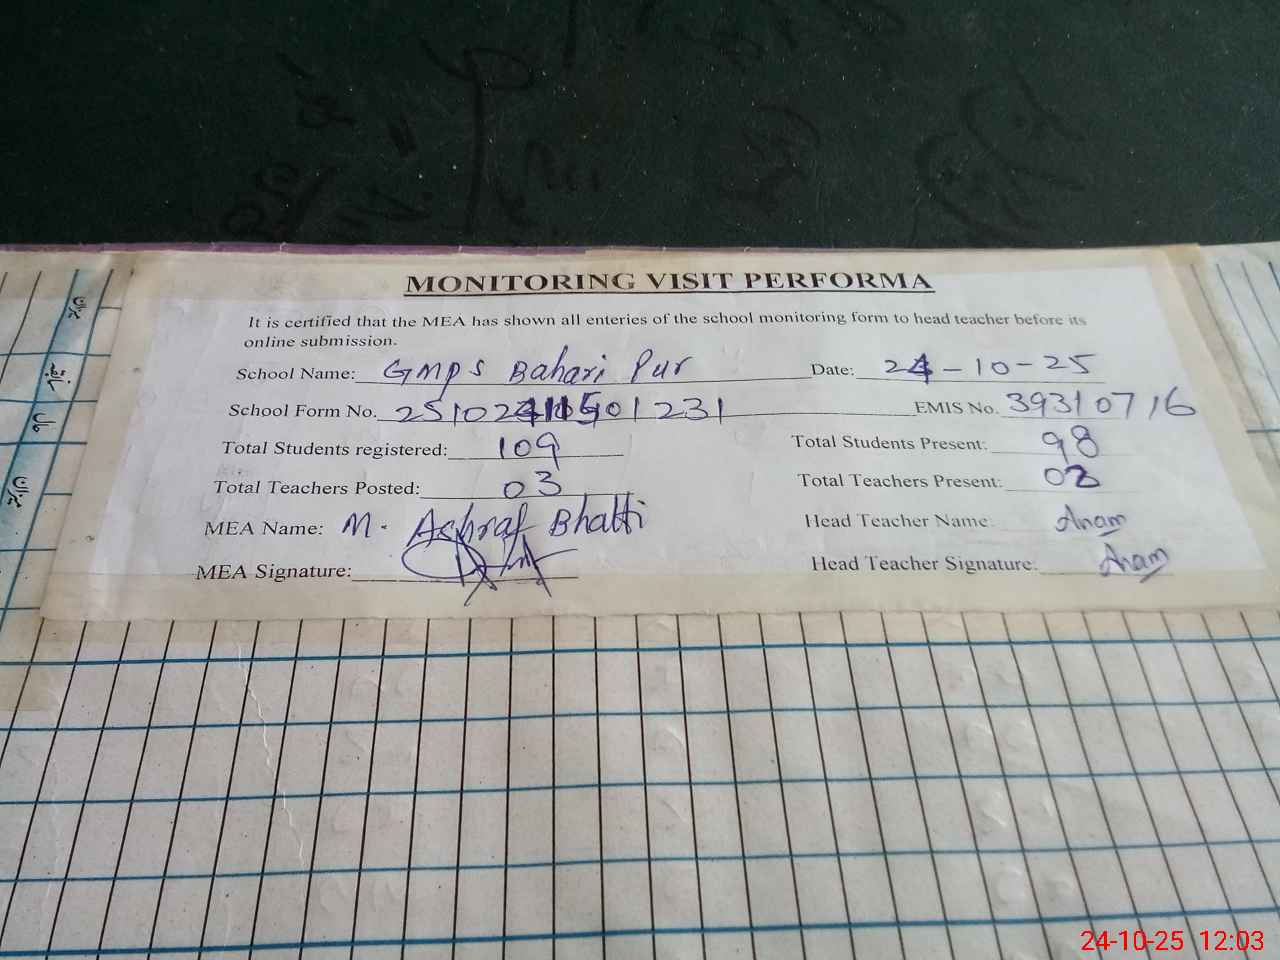 MONITORING VISIT PERFORMA
It is certified that the MEA has shown all enteries of the school monitoring form to head teacher before its
online submission.
School Name: GMPS Bahari Pur Date: 24-10-25
School Form No. EMIS No. 39310716
Total Students registered: 109 Total Students Present: 98
Total Teachers Posted: 03 Total Teachers Present:
MEA Name: M. Ashraf Bhatti Head Teacher Name Anam
MEA Signature: Head Teacher Signature: Anam
میزان
سابقہ
حال
میزان
24-10-25 12:03